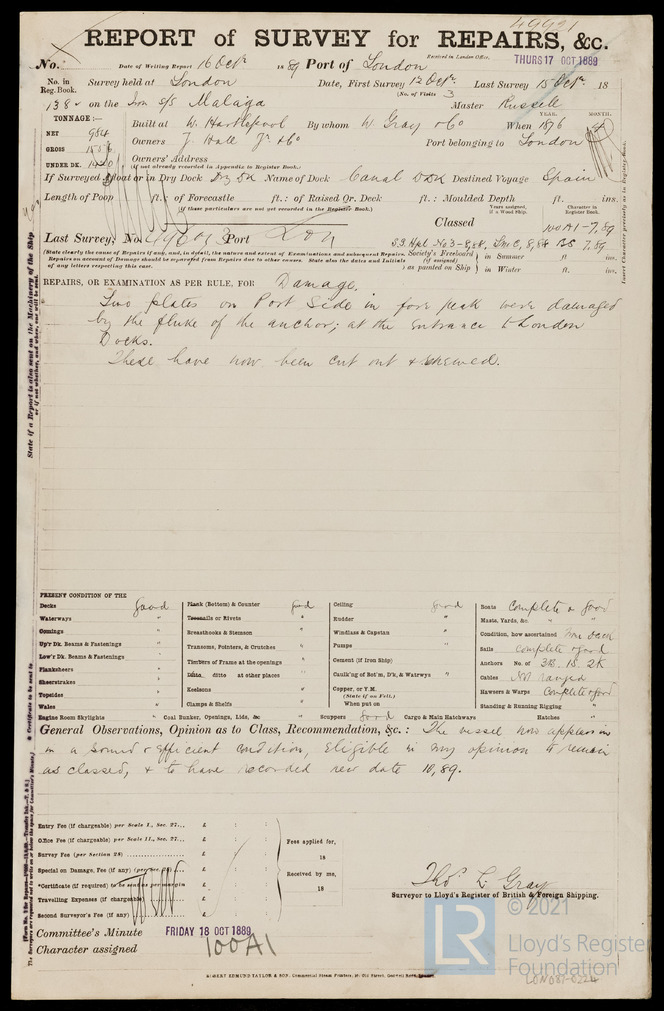 49991
REPORT of SURVEY for REPAIRS, &c.
No. Date of Writing Report 16 Octr 1889 Port of London Received in London Office, THURS 17 OCT 1889
No. in Reg. Book. Survey held at London Date, First Survey 12 Octr Last Survey 15 Octr 18
(No. of Visits 3
138 on the Iron S/S Malaga Master Russell
TONNAGE :— YEAR. MONTH.
NET 984 Built at W. Hartlepool By whom W. Gray & Co When 1876
GROSS Owners J. Hall Jr & Co Port belonging to London
UNDER DK. Owners' Address
(if not already recorded in Appendix to Register Book.)
If Surveyed Afloat or in Dry Dock Dry Dk Name of Dock Canal D Dk Destined Voyage Spain
Length of Poop ft.: of Forecastle ft.: of Raised Qr. Deck ft.: Moulded Depth ft. ins.
(If those particulars are not yet recorded in the Register Book.)
Years assigned, if a Wood ship. Character in Register Book.
Classed 100A1-7,89
Last Survey, No. Port Lon
S.S. Hpl No 3-8,88
(State clearly the cause of Repairs if any, and, in detail, the nature and extent of Examinations and subsequent Repairs. Repairs on account of Damage should be separated from Repairs due to other causes. State also the dates and Initials of any letters respecting this case.
Society's Freeboard (if assigned) as painted on Ship in Summer ft. ins.
in Winter ft. ins.
REPAIRS, OR EXAMINATION AS PER RULE, FOR Damage.
Two plates on Port Side in fore peak were damaged
by the fluke of the anchor; at the entrance to London
Docks.
These have now been cut out & renewed.
PRESENT CONDITION OF THE
Decks Good
Waterways "
Comings "
Up'r Dk. Beams & Fastenings "
Low'r Dk. Beams & Fastenings "
Planksheers "
Sheerstrakes "
Topsides "
Wales "
Plank (Bottom) & Counter Good
Treenails or Rivets "
Breasthooks & Stemson "
Transoms, Pointers, & Crutches "
Timbers of Frame at the openings "
Ditto ditto at other places "
Keelsons "
Clamps & Shelfs "
Ceiling Good
Rudder "
Windlass & Capstan "
Pumps "
Cement (if Iron Ship) "
Caulk'g of Bot'm, D'k, & Waterwys "
Copper, or Y.M.
(State if on Felt.)
When put on
Boats Complete & good
Masts, Yards, &c. "
Condition, how ascertained from deck
Sails complete & good
Anchors No. of 3B. 1S. 2K
Cables Not ranged
Hawsers & Warps Complete & good
Standing & Running Rigging "
Engine Room Skylights " Coal Bunker, Openings, Lids, &c " Scuppers Good Cargo & Main Hatchways Hatches "
General Observations, Opinion as to Class, Recommendation, &c.: The vessel now appears in
in a sound & efficient condition, eligible in my opinion to remain
as classed, & to have recorded new date 10,89.
Entry Fee (if chargeable) per Scale I., Sec. 27... £ : :
Office Fee (if chargeable) per Scale II., Sec. 27... £ : :
Survey Fee (per Section 28) £ : :
Special on Damage, Fee (if any) (per Sec. 28) £ : :
*Certificate (if required) to be sent as per margin £ : :
Travelling Expenses (if chargeable) £ : :
Second Surveyor's Fee (if any) £ : :
Fees applied for,
18
Received by me,
18
Thos L Gray
Surveyor to Lloyd's Register of British & Foreign Shipping.
Committee's Minute FRIDAY 18 OCT 1889
Character assigned 100A1
ROBERT EDMUND TAYLOR & SON, Commercial Steam Printers, 19, Old Street, Goswell Road, London.
State if a Report is also sent on the Machinery of the Ship
or if not whether, and when, one will be sent.
* Certificate to be sent to
Insert Character precisely as in Register Book.
LR
© 2021
Lloyd's Register
Foundation
LOND87-0224